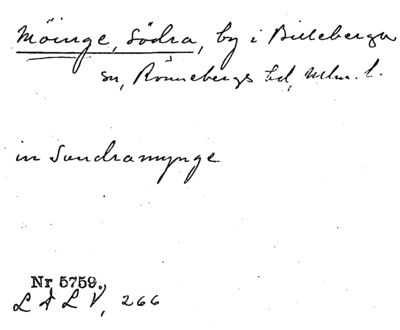 Möinge, Södra, by i Billeberga
sn, Rönnebergs hd, Mlm. l.
in Sundramynge
Nr 5759.
L A L V, 266